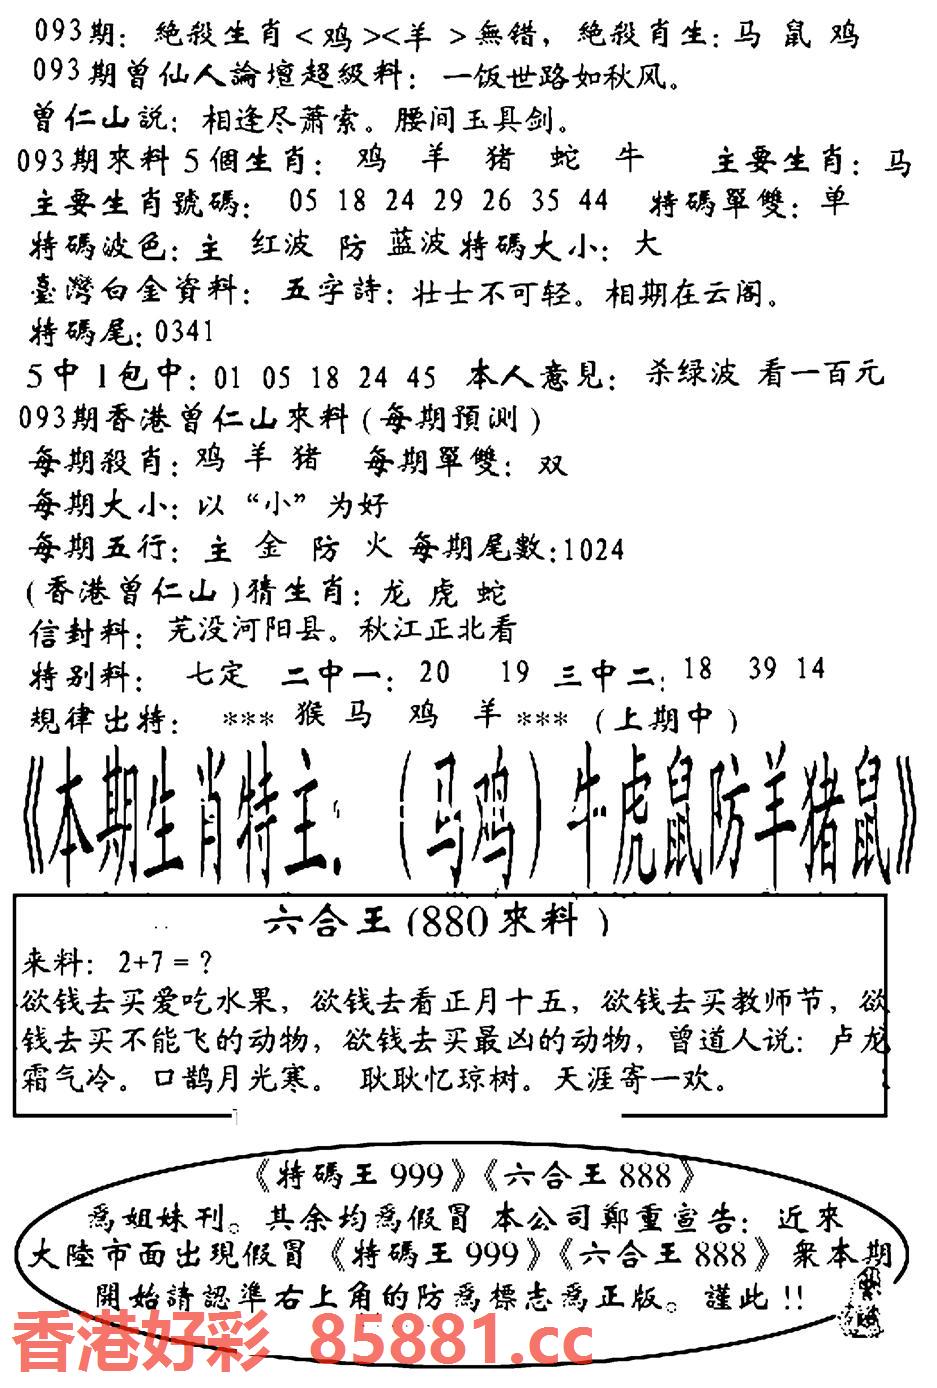 093期: 絶殺生肖<鸡><羊>無错, 絶殺肖生: 马 鼠 鸡
093期曾仙人論壇超級料: 一饭世路如秋风。
曾仁山説: 相逢尽萧索。腰间玉具剑。
093期來料5個生肖: 鸡 羊 猪 蛇 牛 主要生肖: 马
主要生肖號碼: 05 18 24 29 26 35 44 特碼單雙: 单
特碼波色: 主 红波 防 蓝波 特碼大小: 大
臺灣白金資料: 五字詩: 壮士不可轻。相期在云阁。
特碼尾: 0341
5中1包中: 01 05 18 24 45 本人意見: 杀绿波 看一百元
093期香港曾仁山來料(每期預测)
每期殺肖: 鸡 羊 猪 每期單雙: 双
每期大小: 以“小”为好
每期五行: 主 金 防 火 每期尾數:1024
(香港曾仁山)猜生肖: 龙 虎 蛇
信封料: 芜没河阳县。秋江正北看
特别料: 七定 二中一: 20 19 三中二: 18 39 14
規律出特: *** 猴 马 鸡 羊 *** (上期中)
《本期生肖特主: (马鸡)牛虎鼠防羊猪鼠》
六合王(880來料)
来料: 2+7=?
欲钱去买爱吃水果, 欲钱去看正月十五, 欲钱去买教师节, 欲
钱去买不能飞的动物, 欲钱去买最凶的动物, 曾道人说: 卢龙
霜气冷。口鹊月光寒。 耿耿忆琼树。天涯寄一欢。
《特碼王999》《六合王888》
爲姐妹刊。其余均爲假冒 本公司鄭重宣告: 近來
大陸市面出現假冒《特碼王999》《六合王888》衆本期
開始請認準右上角的防爲標志爲正版。謹此!!
香港好彩 85881.cc